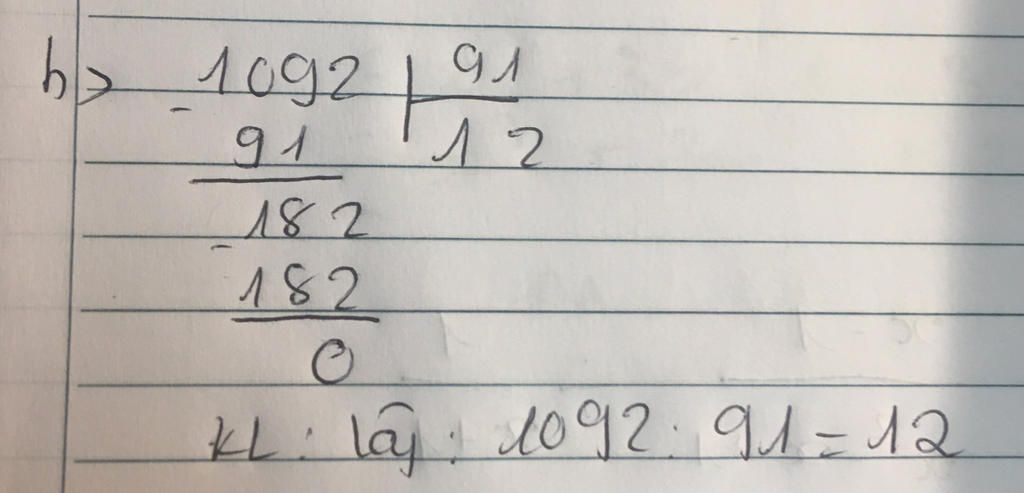 b> 1092 | 91
- 91 12
- 182
182
0
KL : : 1092 : 91 = 12